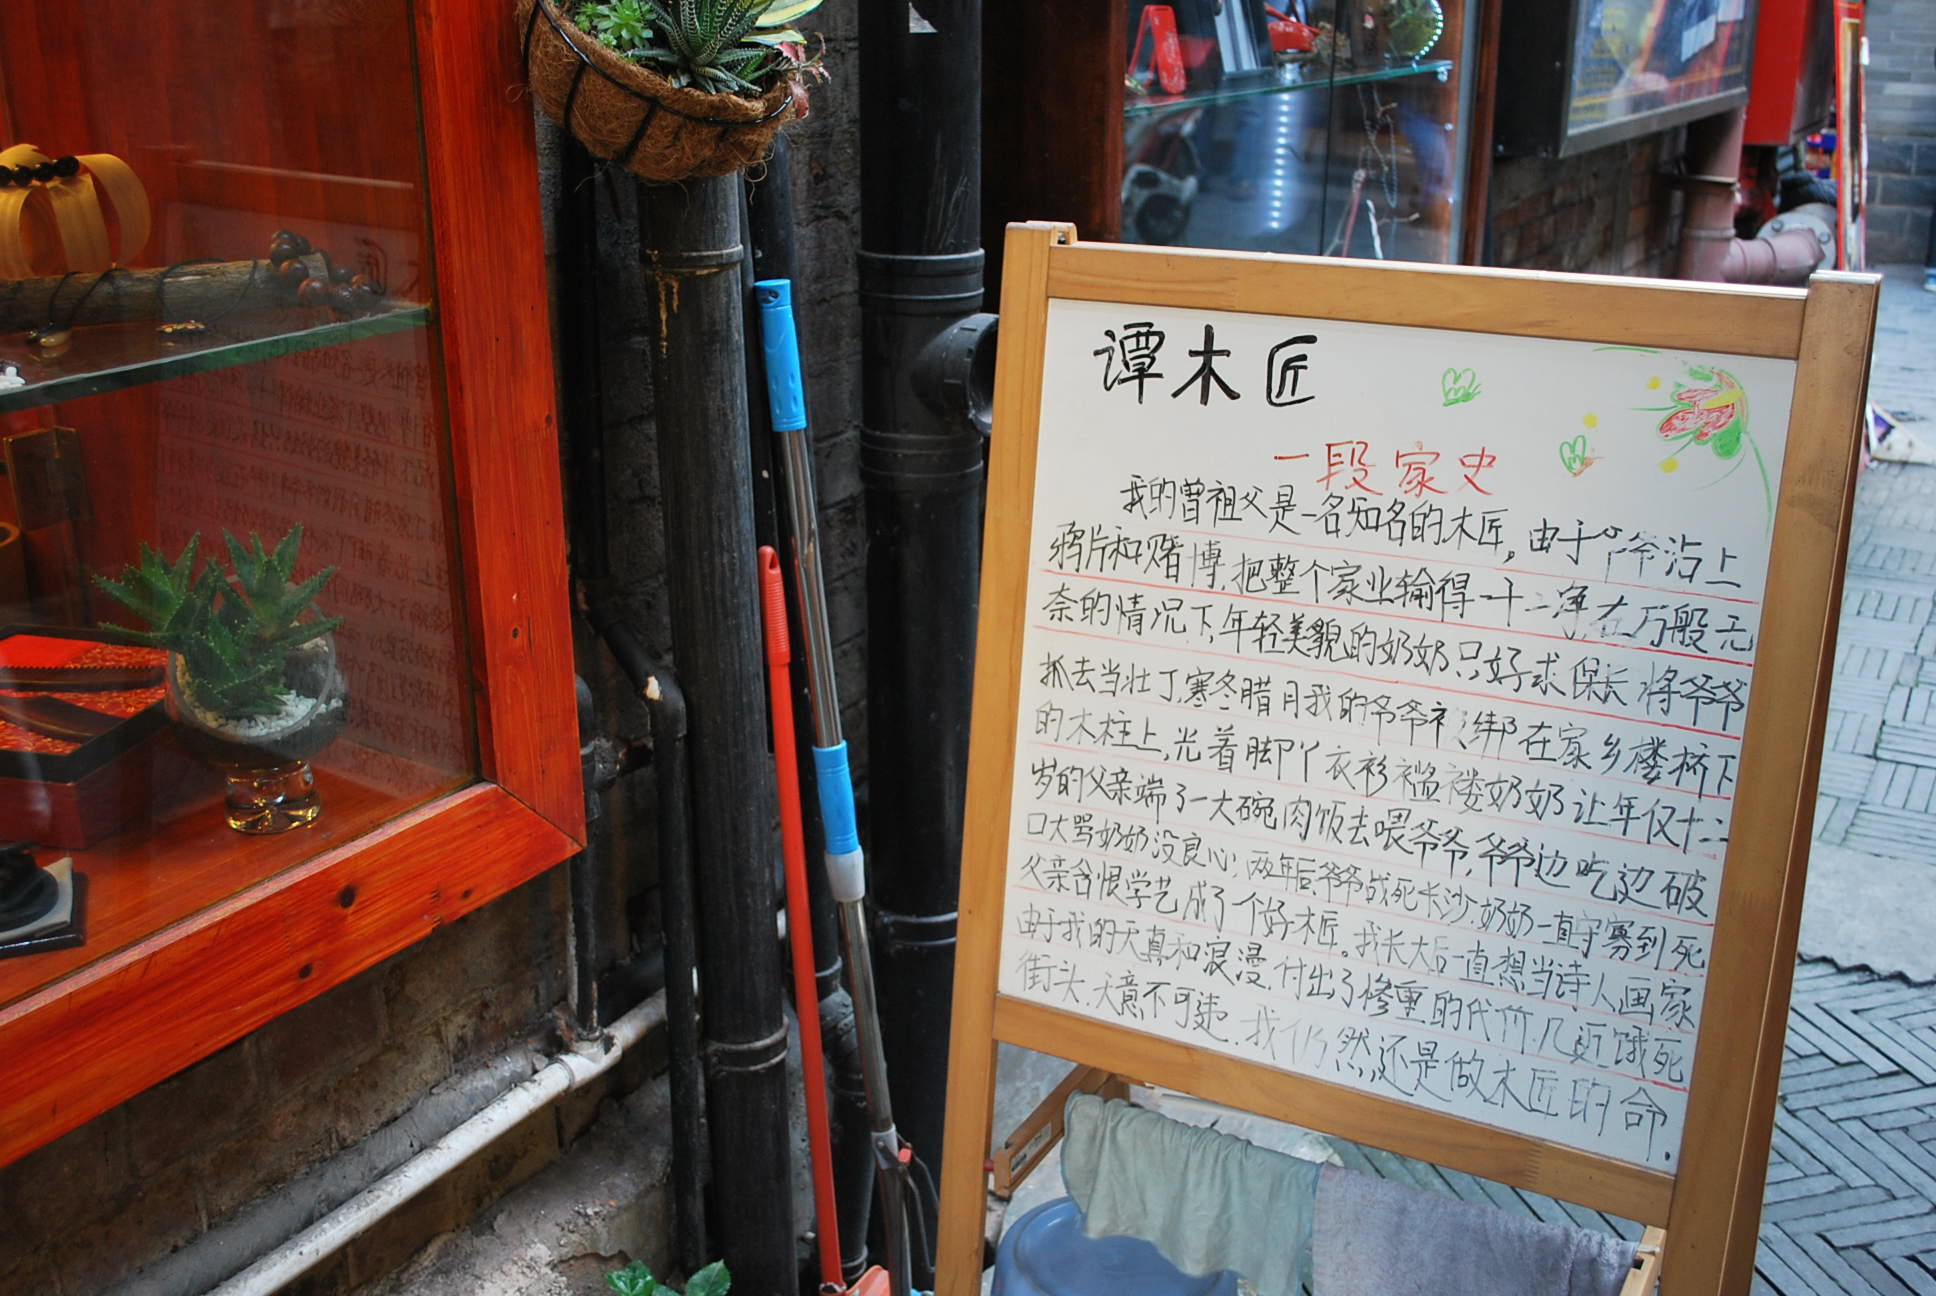 谭木匠
一段家史
我的曾祖父是一名知名的木匠,由于爷爷沾上
鸦片和赌博,把整个家业输得一干二净,在万般无
奈的情况下,年轻美貌的奶奶只好求保长将爷爷
抓去当壮丁,寒冬腊月我的爷爷被绑在家乡楼桥下
的木柱上,光着脚丫衣衫褴褛奶奶让年仅十二
岁的父亲端了一大碗肉饭去喂爷爷,爷爷边吃边破
口大骂奶奶没良心;两年后爷爷战死长沙.奶奶一直守寡到死
父亲含恨学艺成了个好木匠。我长大后一直想当诗人,画家
由于我的天真和浪漫,付出了惨重的代价,几近饿死
街头.天意不可违.我仍然还是做木匠的命.